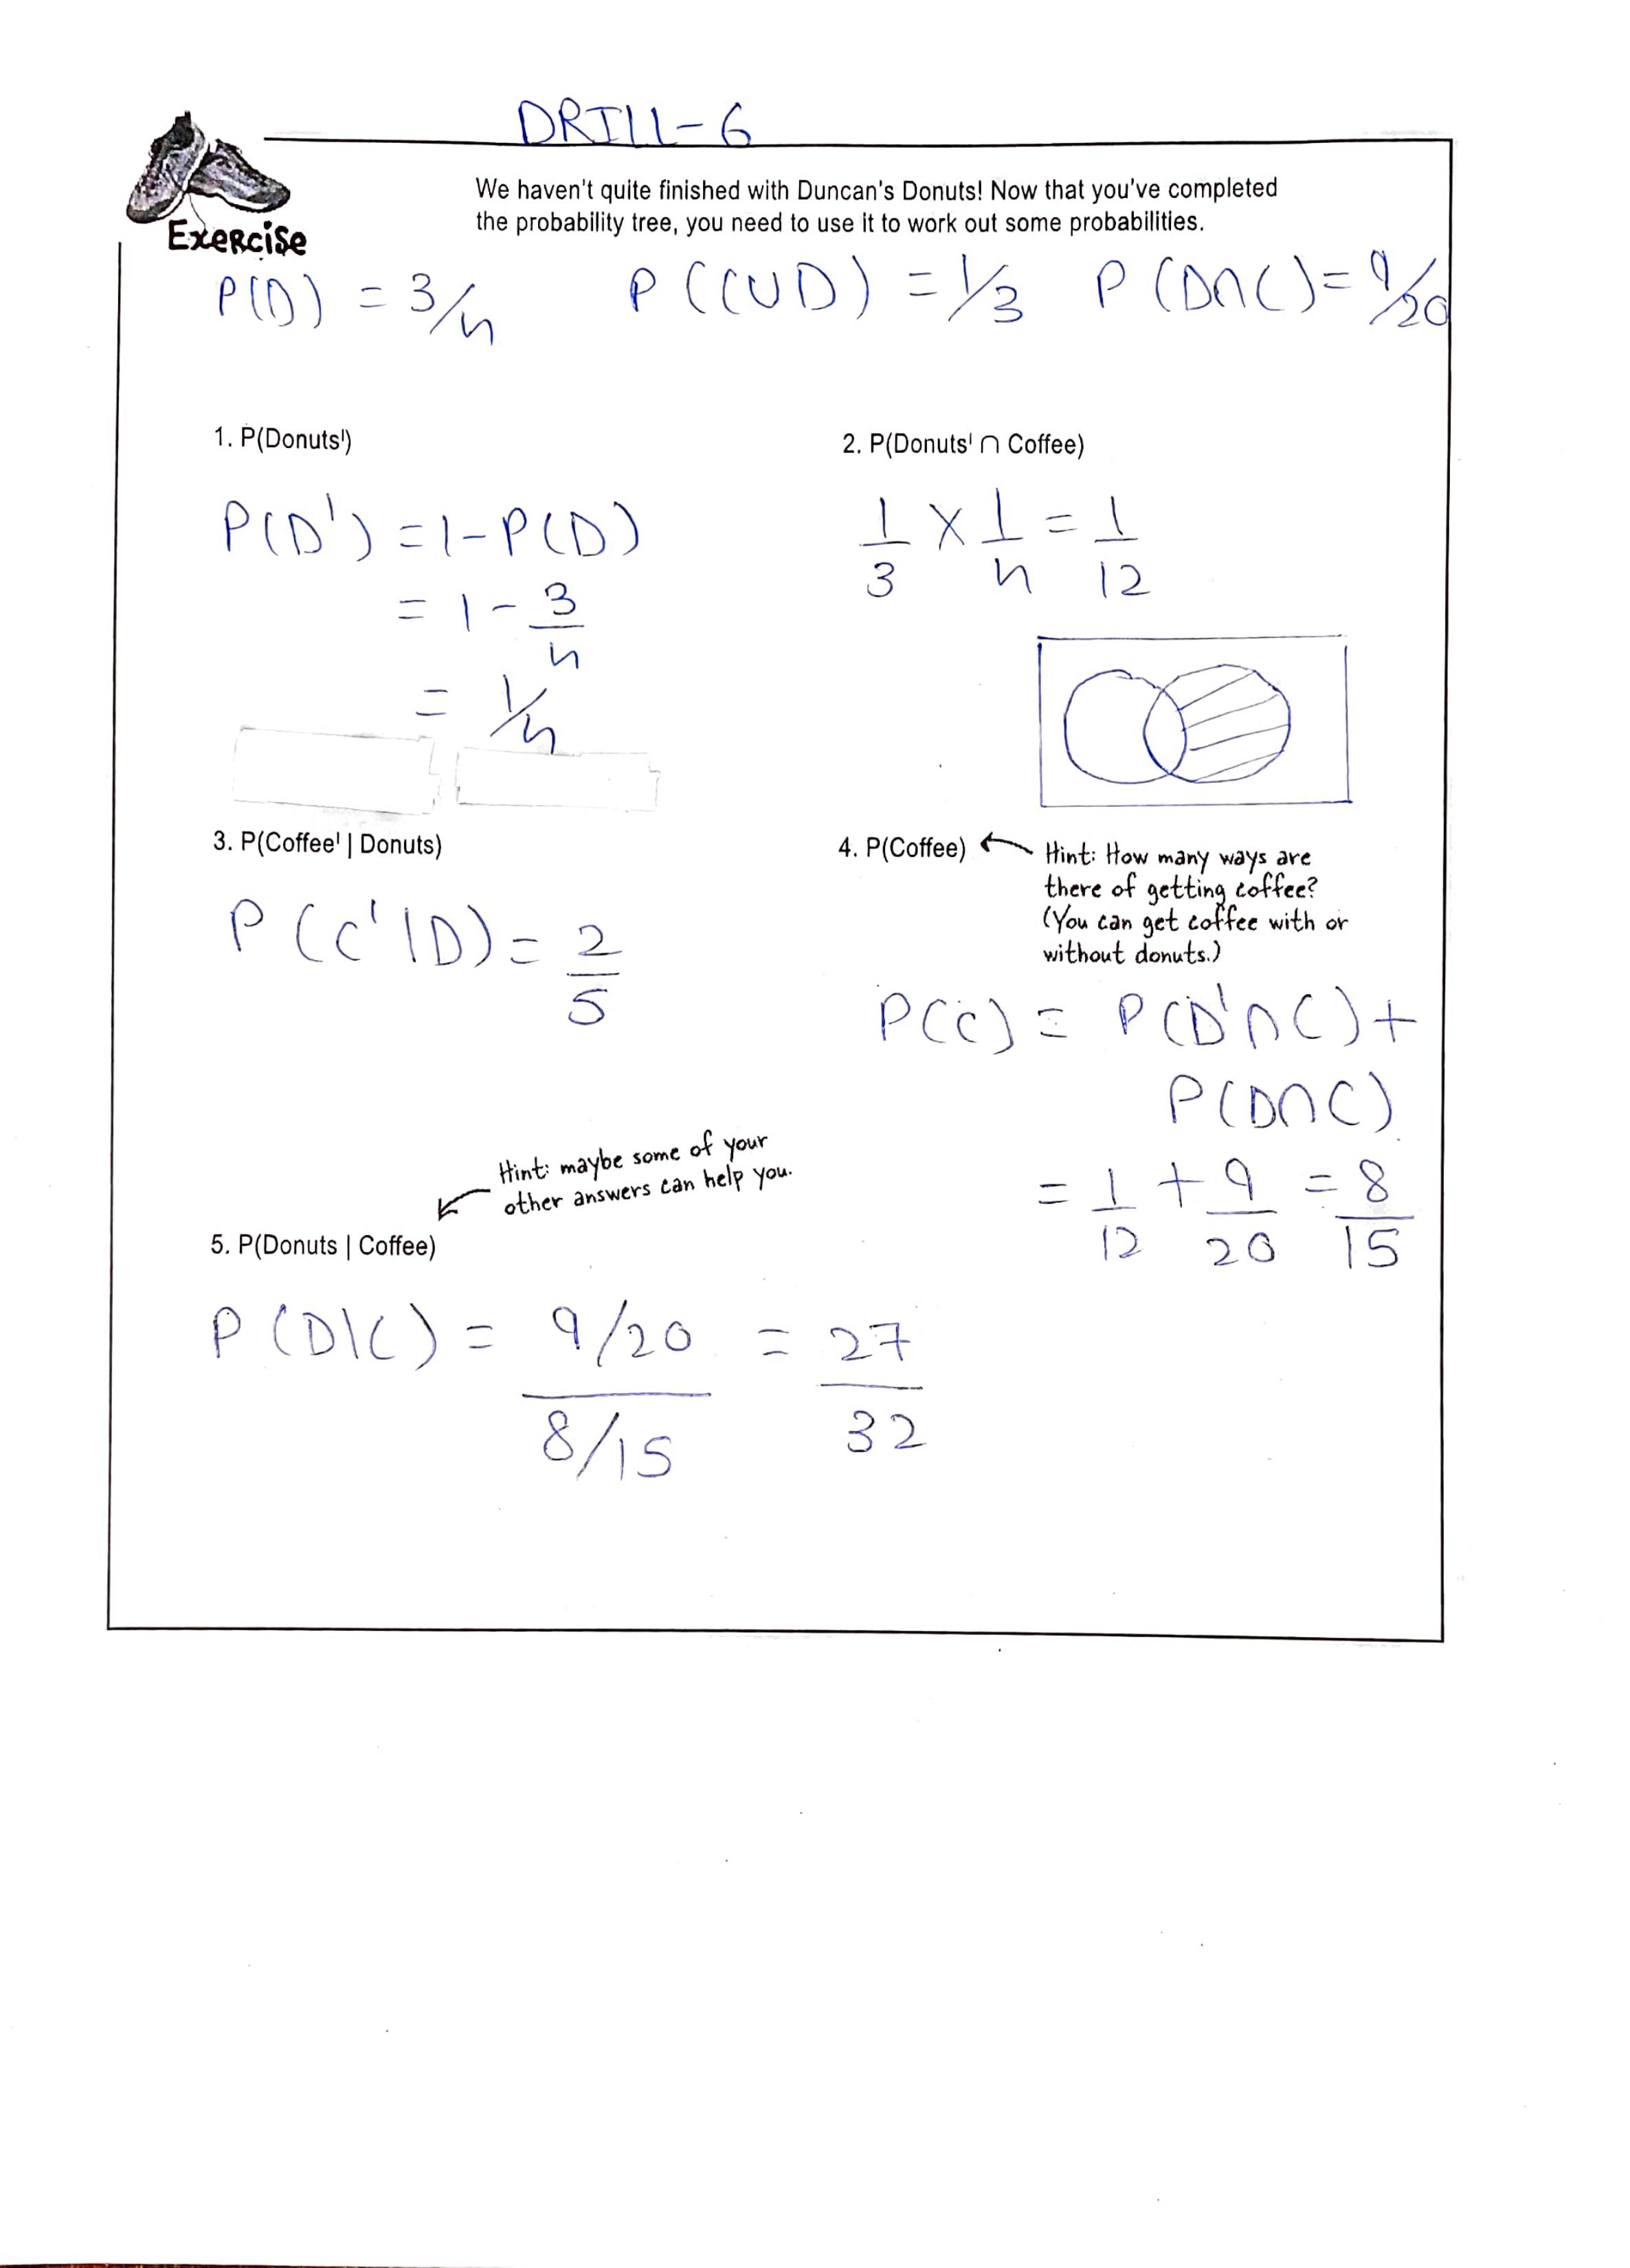 DRILL-6
We haven't quite finished with Duncan's Donuts! Now that you've completed
the probability tree, you need to use it to work out some probabilities.
Exercise
P(D) = 3/4 P(CUD) = 1/3 P(D∩C) = 9/20
1. P(Donuts')
2. P(Donuts' ∩ Coffee)
P(D') = 1 - P(D)
= 1 - 3/4
= 1/4
1/3 × 1/4 = 1/12
3. P(Coffee' | Donuts)
4. P(Coffee)
Hint: How many ways are
there of getting coffee?
(You can get coffee with or
without donuts.)
P(C'|D) = 2/5
P(C) = P(D'∩C) +
P(D∩C)
= 1/12 + 9/20 = 8/15
Hint: maybe some of your
other answers can help you.
5. P(Donuts | Coffee)
P(D|C) = 9/20 / 8/15 = 27/32